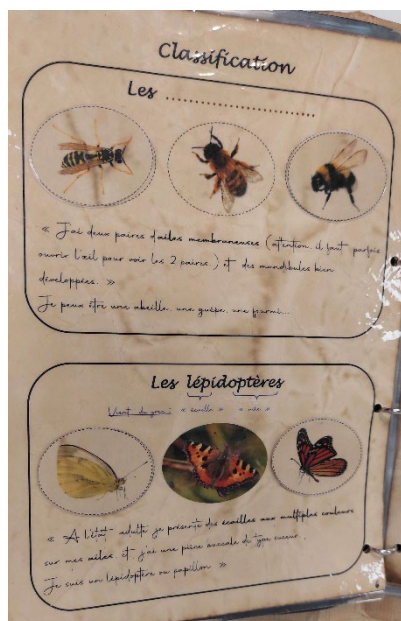 Classification
Les ........................
« J'ai deux paires d'ailes membraneuses (attention, il faut parfois
ouvrir l'œil pour voir les 2 paires) et des mandibules bien
développées. »
Je peux être une abeille, une guêpe, une fourmi...
Les lépidoptères
Vient du grec : « écaille » « aile »
« A l'état adulte je présente des écailles aux multiples couleurs
sur mes ailes, et j'ai une pièce buccale de type suceur.
Je suis un lépidoptère ou papillon »